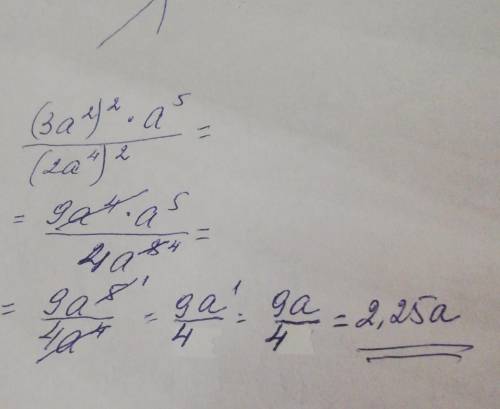 (3a²)² · a⁵ / (2a⁴)² =
= 9a⁴ · a⁵ / 4a⁸ ⁴ =
= 9a⁵ ¹ / 4a⁴ = 9a¹ / 4 = 9a / 4 = 2,25a